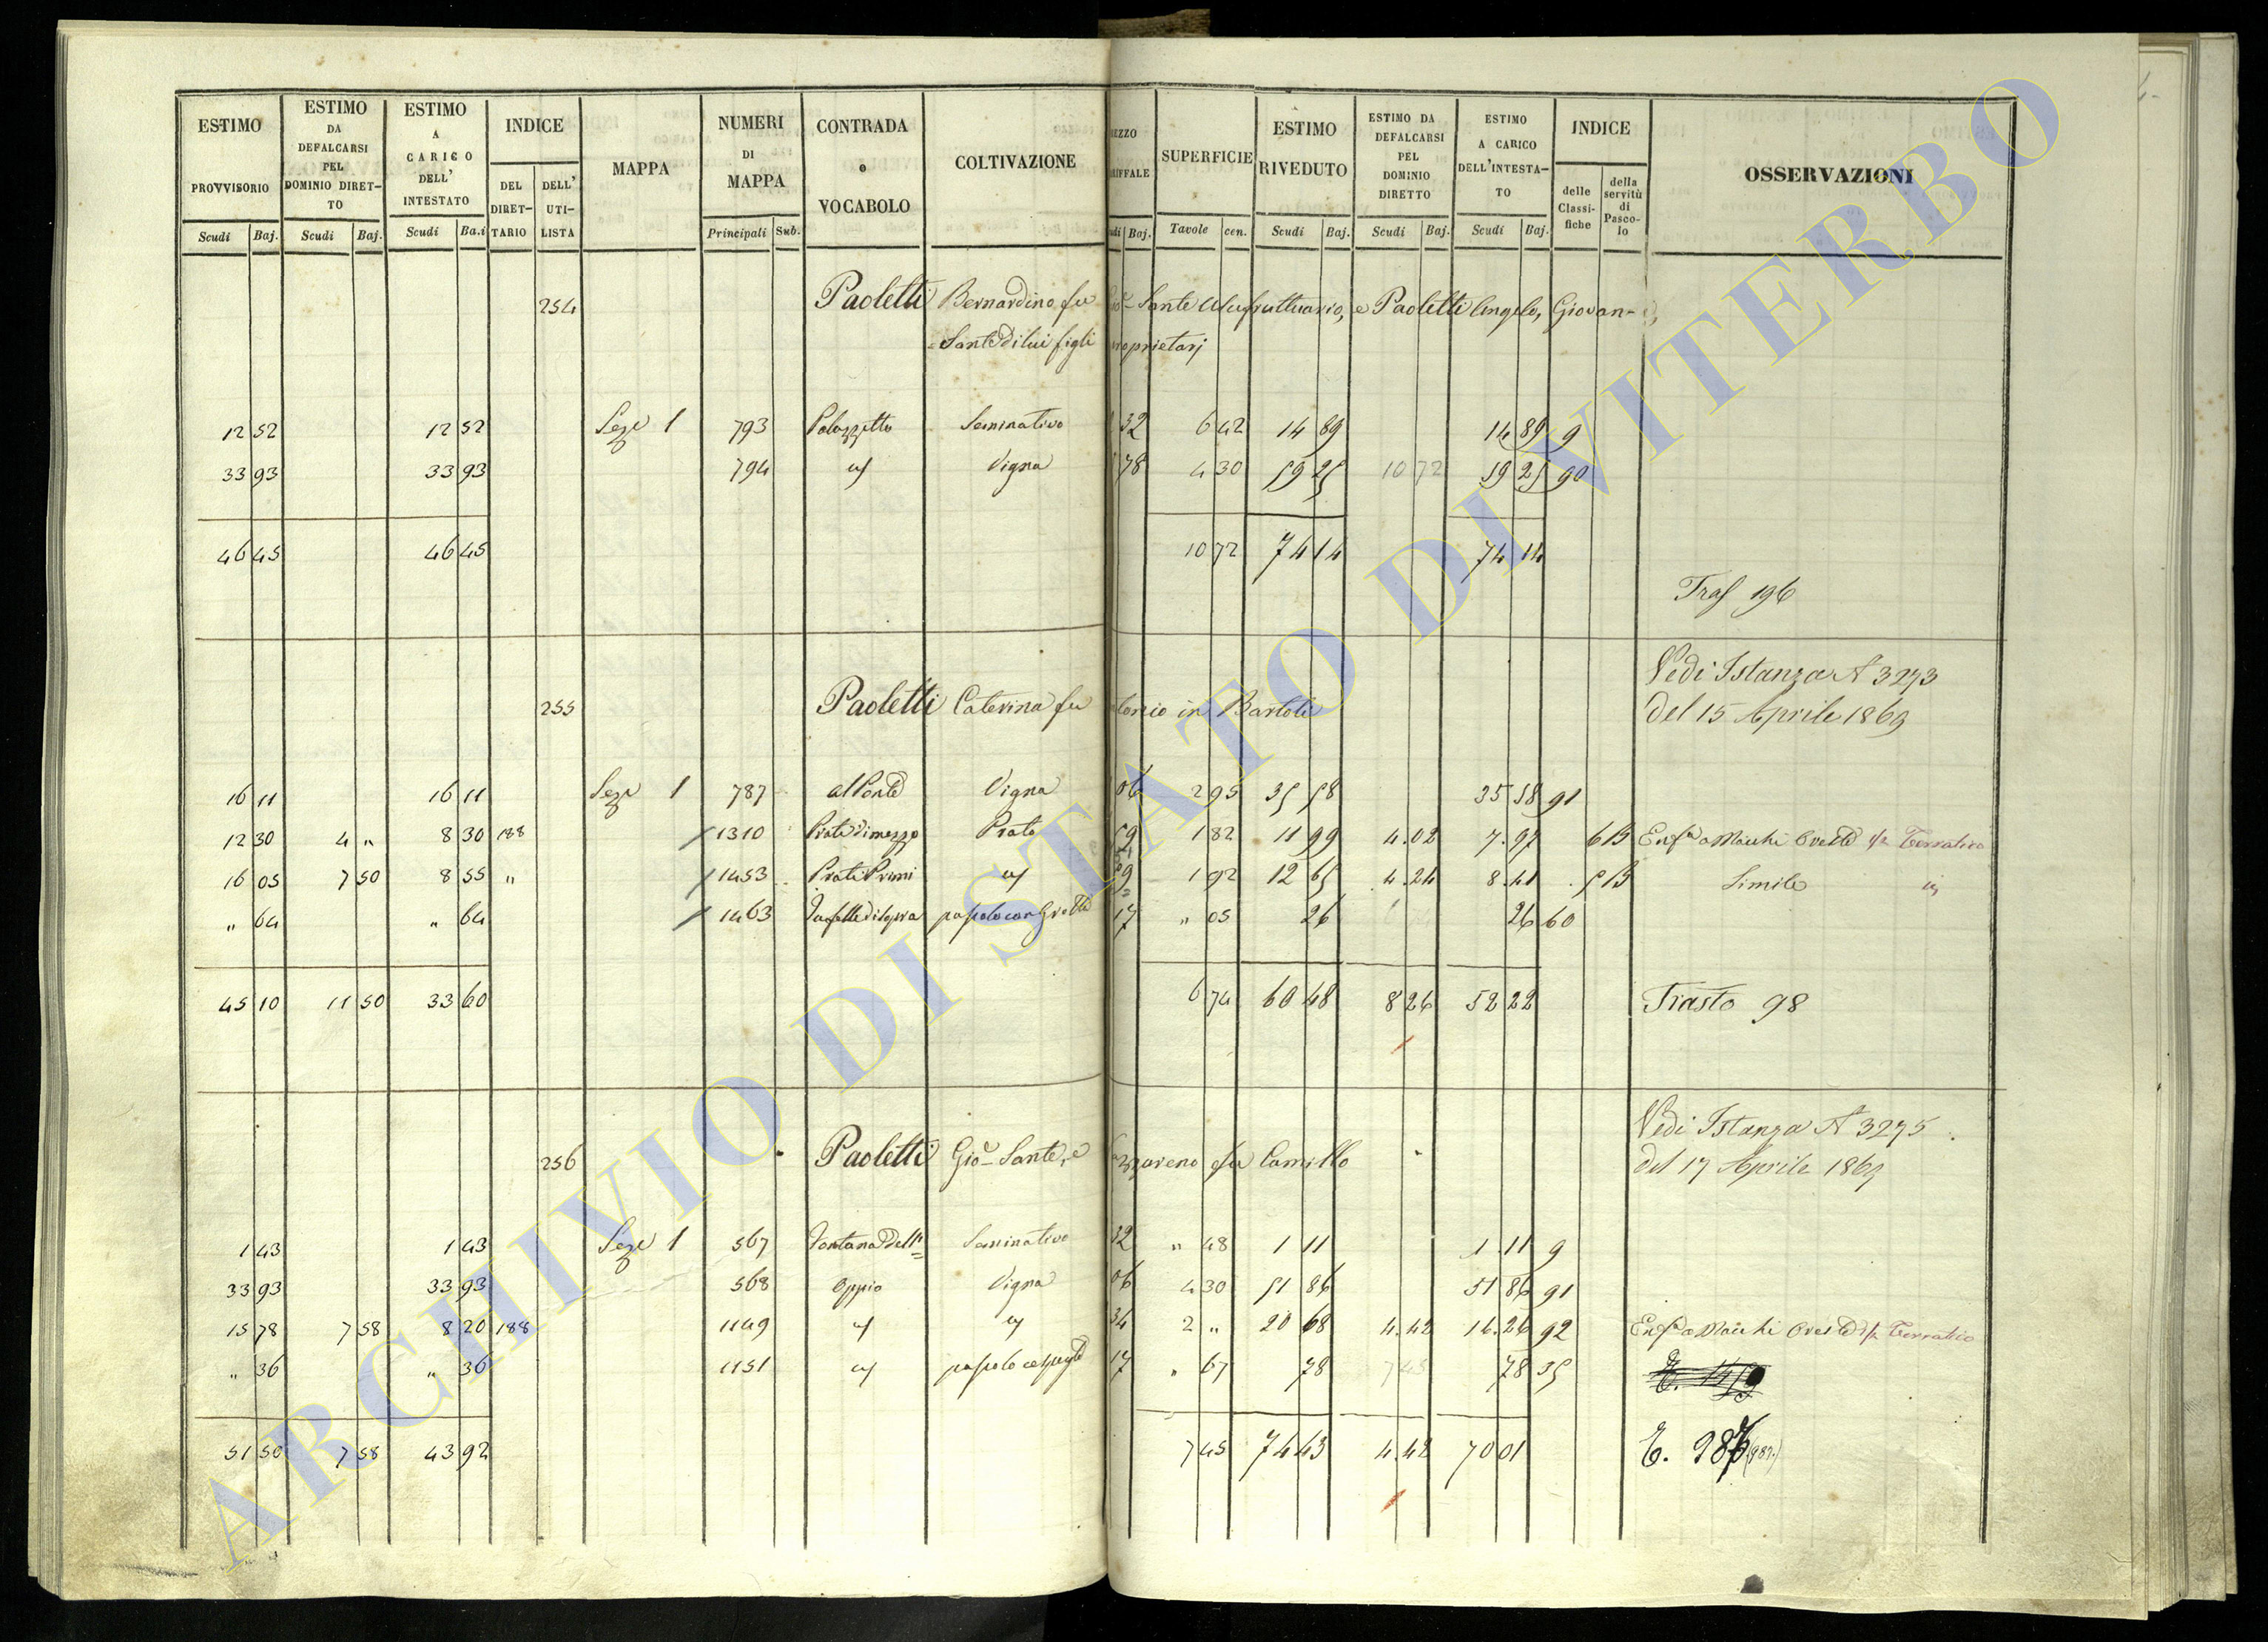 ESTIMO PROVVISORIO | ESTIMO DA DEFALCARSI PEL DOMINIO DIRET-TO | ESTIMO A CARICO DELL' INTESTATO | INDICE | MAPPA | NUMERI DI MAPPA | CONTRADA o VOCABOLO | COLTIVAZIONE | SUPERFICIE | ESTIMO RIVEDUTO | ESTIMO DA DEFALCARSI PEL DOMINIO DIRETTO | ESTIMO A CARICO DELL'INTESTA-TO | INDICE | OSSERVAZIONI
DEL DIRET-TARIO | DELL' UTI-LISTA | delle Classi-fiche | della servitù di Pasco-lo
Scudi | Baj. | Scudi | Baj. | Scudi | Ba.i | Principali | Sub. | Baj. | Tavole | cen. | Scudi | Baj. | Scudi | Baj. | Scudi | Baj.
254 Paoletti Bernardino fu Gio- Sante Usufruttuario, e Paoletti Angelo, Giovan-
Sante di lui figli proprietarj
12 52 | 12 52 | Sez.e 1 | 793 | Palazzetto | Seminativo | 32 | 6 42 | 14 89 | 14 89 | 9
33 93 | 33 93 | 794 | Vigna | 78 | 4 30 | 59 25 | 10 72 | 59 25 | 90
46 45 | 46 45 | 10 72 | 74 14 | 74 14
Tras 196
Vedi Istanza N 3273
255 Paoletti Caterina fu Antonio in Bartoli
del 15 Aprile 1869
16 11 | 16 11 | Sez.e 1 | 787 | al Ponte | Vigna | 06 | 2 95 | 35 58 | 35 58 | 91
12 30 | 4 " | 8 30 | 188 | 1310 | Prato di mezzo | Prato | 59 | 1 82 | 11 99 | 4.02 | 7.97 | 6 B | Enf.a a Macchi Oreste
16 05 | 7 50 | 8 55 | " | 1453 | Prati Primi | 59 | 1 92 | 12 65 | 4.24 | 8.41 | 5 B | Simile
" 64 | " 64 | 1463 | pascolo con Grotta | 17 | " 05 | 26 | 26 | 60
45 10 | 11 50 | 33 60 | 6 74 | 60 48 | 8 26 | 52 22 | Trasto 98
Vedi Istanza N 3275
256 Paoletti Gio- Sante, e Nazzareno fu Camillo
del 17 Aprile 1869
1 43 | 1 43 | Sez.e 1 | 567 | Fontana dell' | Seminativo | 32 | " 48 | 1 11 | 1 11 | 9
33 93 | 33 93 | 568 | Oppio | Vigna | 06 | 4 30 | 51 86 | 51 86 | 91
15 78 | 7 58 | 8 20 | 188 | 1149 | 34 | 2 " | 20 68 | 4.42 | 16.26 | 92 | Enf.a a Macchi Oreste
" 36 | " 36 | 1151 | pascolo cespugl.to | 17 | " 67 | 78 | 7 45 | 78 | 35
51 50 | 7 58 | 43 92 | 7 45 | 74 43 | 4.42 | 70 01
ARCHIVIO DI STATO DI VITERBO